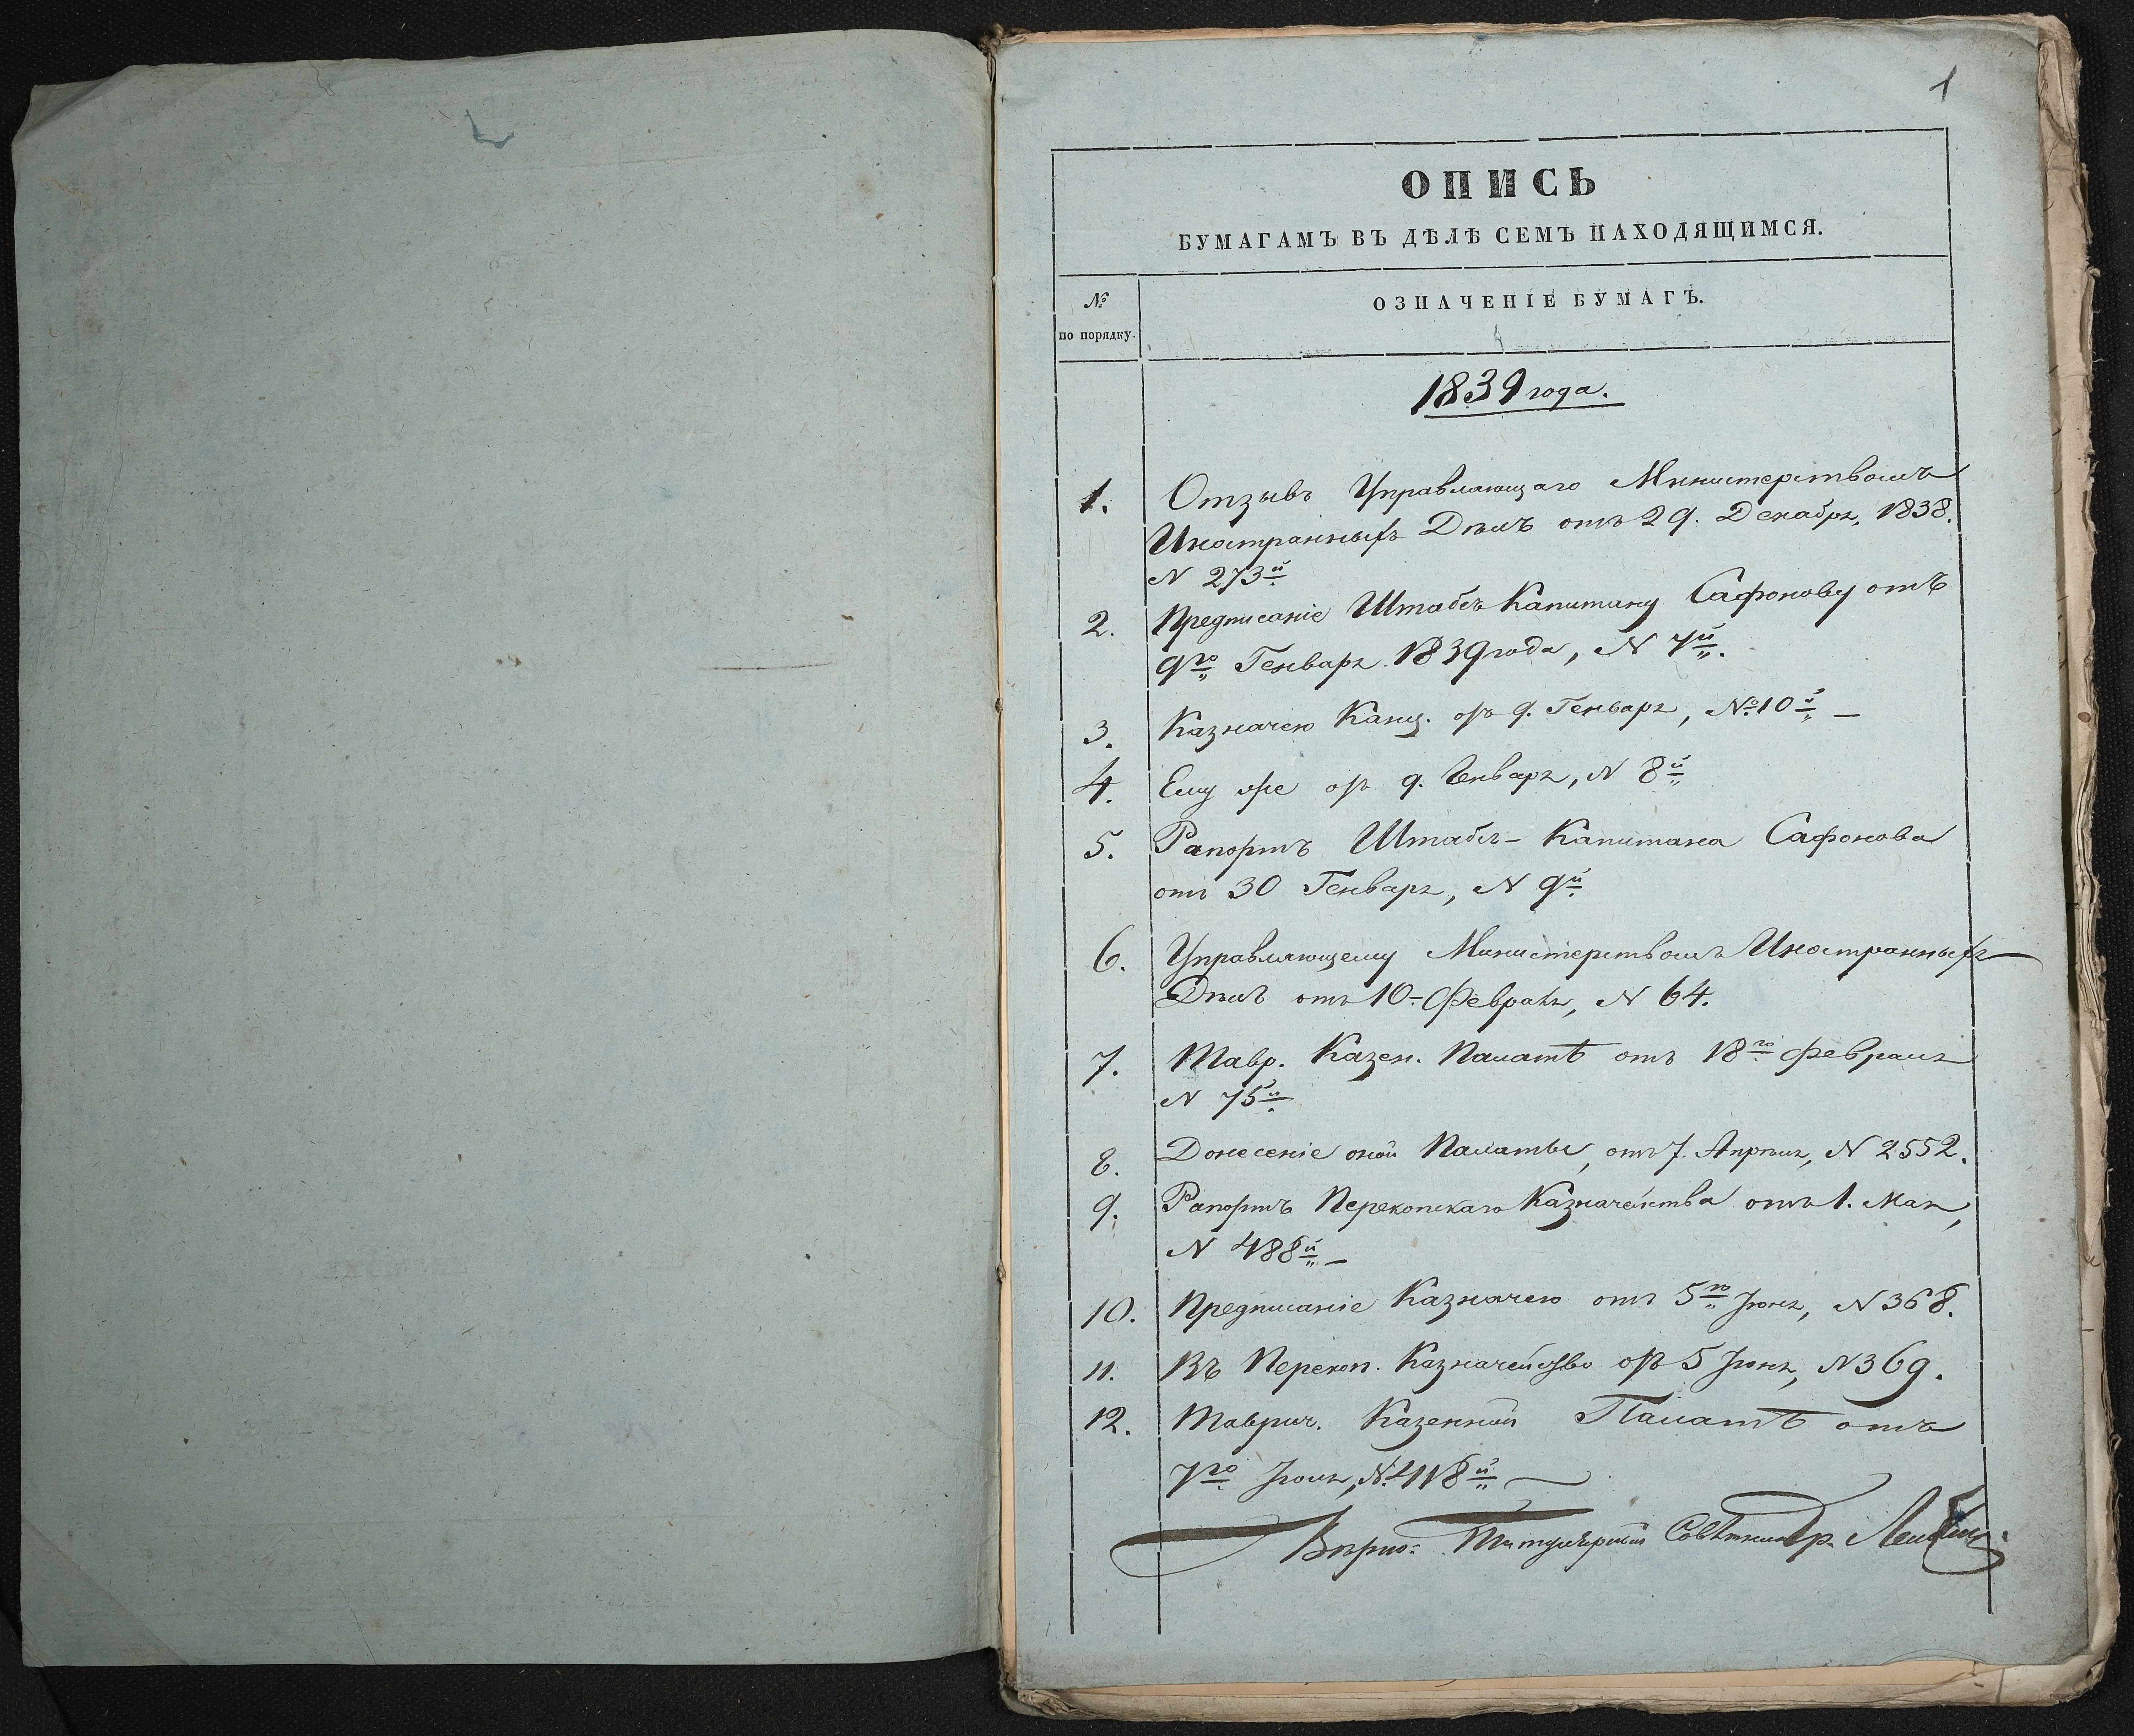 1
ОПИСЬ
БУМАГАМЪ ВЪ ДѢЛѢ СЕМЪ НАХОДЯЩИМСЯ.
№
по порядку.
ОЗНАЧЕНІЕ БУМАГЪ.
1839 года.
1. Отзывъ Управляющаго Министерствомъ
Иностранныхъ Дѣлъ отъ 29. Декабря, 1838.
N 273й
2. Предписаніе Штабсъ Капитану Сафонову отъ
9го Генваря 1839 года, N 7й.
3. Казначею Канц. отъ 9. Генваря, № 10й —
4. Ему же отъ 9. Генваря, N 8й
5. Рапортъ Штабсъ-Капитана Сафонова
отъ 30 Генваря, N 9й
6. Управляющему Министерствомъ Иностранныхъ
Дѣлъ отъ 10-Февраля, N 64.
7. Тавр. Казен. Палатѣ отъ 18го Февраля
N 75й
8. Донесеніе оной Палаты, отъ 7. Апрѣля, N 2552.
9. Рапортъ Перекопскаго Казначейства отъ 1. Мая,
N 488й —
10. Предписаніе Казначею отъ 5го Іюня, N 368.
11. Въ Перекоп. Казначейство отъ 5 Іюня, N 369.
12. Таврич. Казенной Палатѣ отъ
7го Іюля, № 418й —
Вѣрно: Титулярный Совѣтникъ